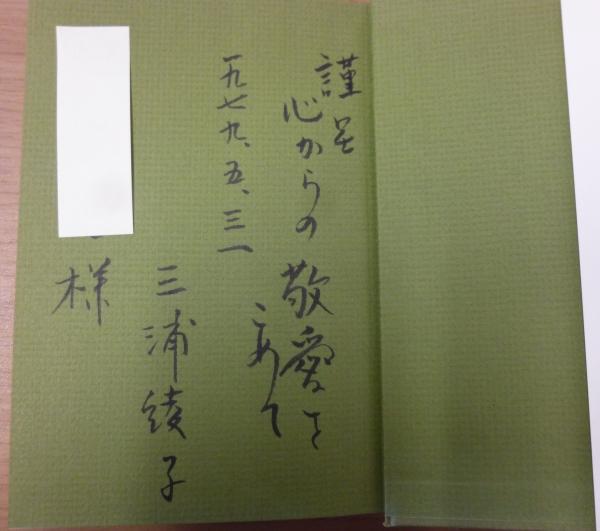 謹呈
心からの敬愛を
こめて
一九七九、五、三一
三浦綾子
様